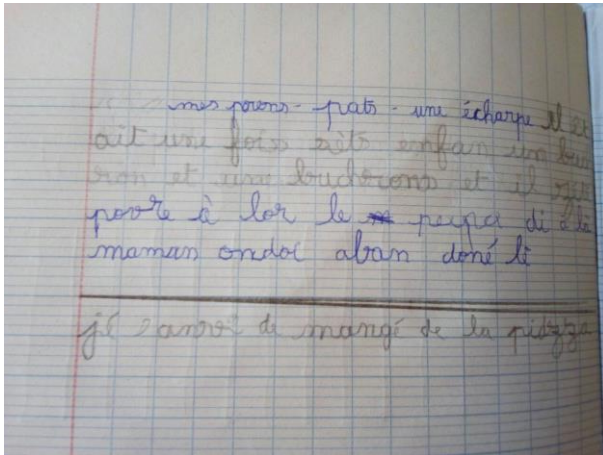 mes porons - prats - une écharpe il ét
ait une fois sèts enfan un bu
ron et une bucherons et il
povre à lor le papa di a la
maman ondoi aban doné lé
j'é envi de mangé de la pidzza